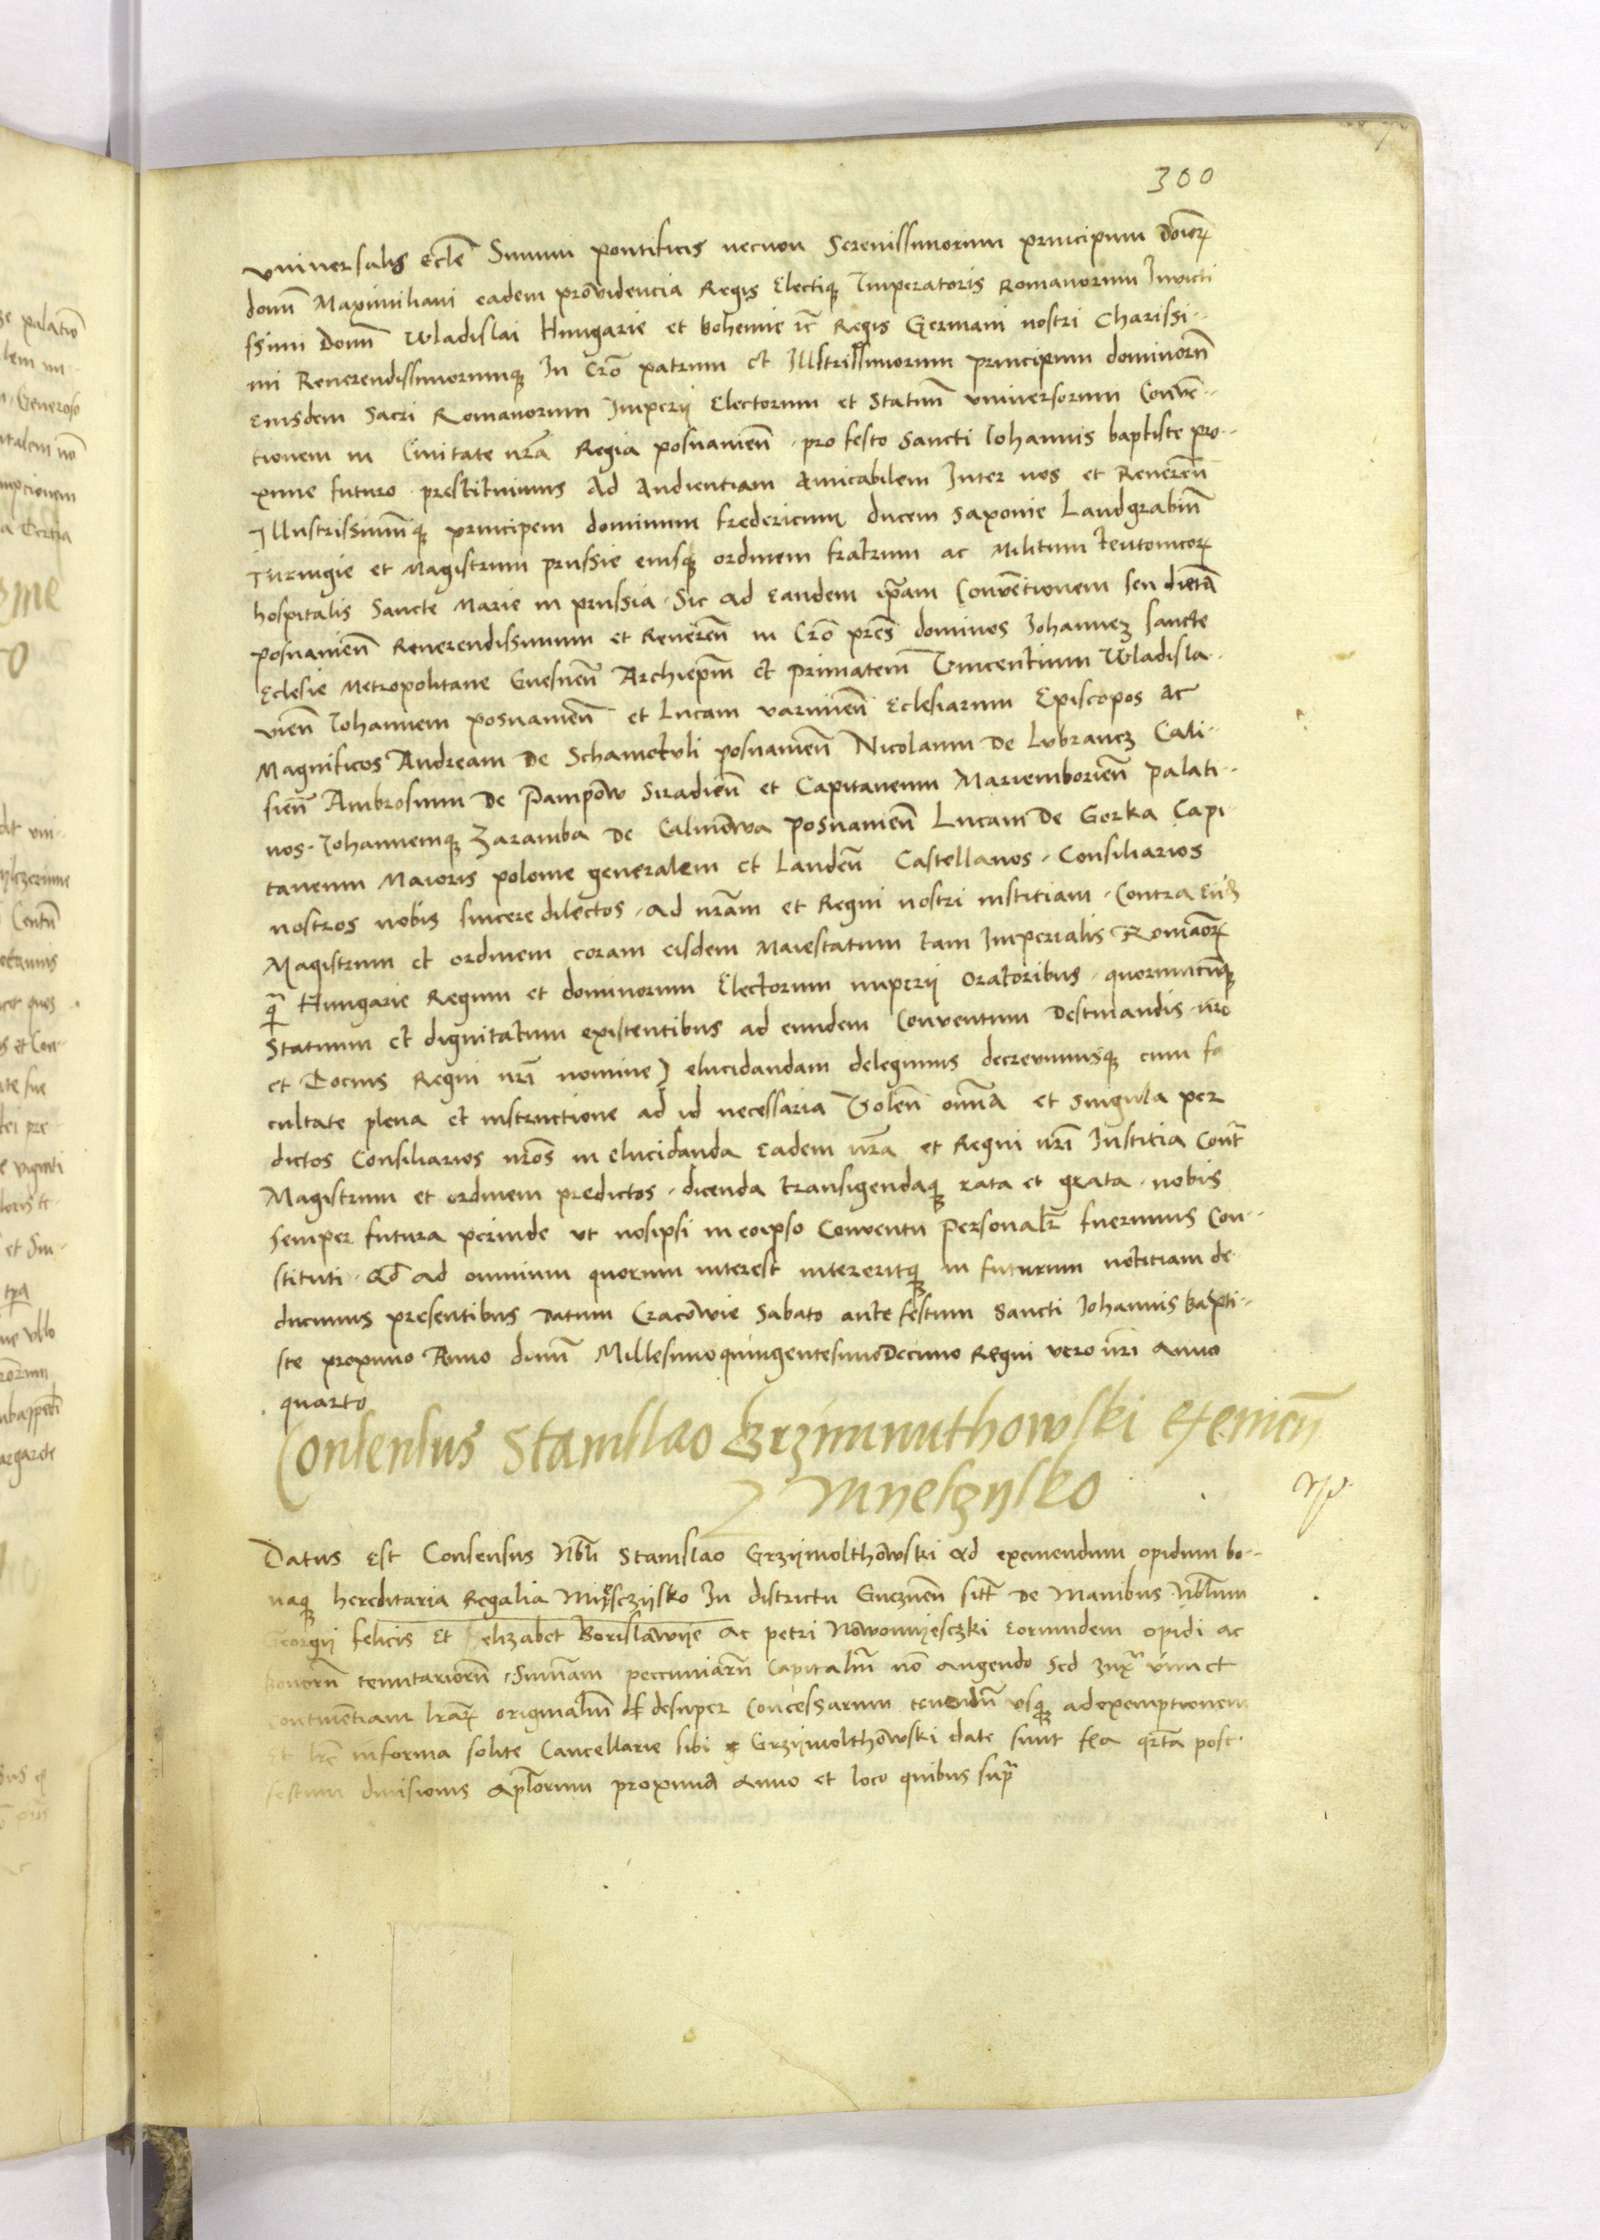 300
vniversalis eccle͞ Summi pontificis necnon Serenissimorum principum doi͞orꝝ
domi͞ Maximiliani eadem providencia Regis Electiqꝫ Imperatoris Romanorum Invicti
ssimi Domi͞ Wladislai Hungarie et bohemie ꝛc͞ Regis Germani nostri Charissi-
mi Reverendissimorumqꝫ In Cro͞ patrum et Illustrissimorum principum dominoru͞
eiusdem Sacri Romanorum Imperij Electorum et Statuu͞ vniversorum Conve͞-
tionem in Civitate nr͞a Regia posnanien͞ . pro festo Sancti Iohannis baptiste pro-
xime futuro prestituimus Ad Audientiam Amicabilem Inter nos et Reveren͞
Illustrissimu͞qꝫ principem dominum fredericum ducem Saxonie Landgrabiu͞
Turingie et Magistrum prussie eiusqꝫ ordinem fratrum ac Militum teutonicorꝝ
hospitalis Sancte Marie in prussia . Sic ad Eandem ip͞am Conve͞tionem seu dieta͞
posnanien͞ Reverendissimum et Reveren͞ in Cro͞ pres͞ dominos Iohannez sancte
Eclesie Metropolitane Gnesnen͞ Archiep͞m et primatem Vincentium Wladisla-
vien͞ Iohannem posnanien͞ et Lucam varmien͞ Eclesiarum Episcopos ac
Magnificos Andream De Schamotuli posnanien͞ Nicolaum De Lubrancz Cali-
sien͞ Ambrosium De Pampow Siradien͞ et Capitaneum Mariemborien͞ palati-
nos . Iohannemqꝫ Zaramba De Calinowa posnanien͞ Lucam De Gorka Capi-
taneum Maioris polonie generalem et Landen͞ Castellanos . Consiliarios
nostros nobis sincere dilectos . Ad nr͞am et Regni nostri iustitiam . Contra
Magistrum et ordinem coram eisdem Maiestatum tam Imperialis Roma͞orꝝ
q͞ Hungarie Regum et dominorum Electorum imperij oratoribus . quorumcu͞qꝫ
Statuum et dignitatum existentibus ad eundem Conventum Destinandis . nr͞o
et Tocius Regni nr͞i nomine) elucidandam delegimus decrevimusqꝫ cum fa
cultate plena et instructione ad id necessaria Volen͞ omi͞a et singula per
dictos Consiliarios nr͞os in elucidanda Eadem nr͞a et Regni nr͞i Iustitia Cont͞
Magistrum et ordinem predictos . dicenda transigendaqꝫ rata et grata . nobis
semper futura perinde vt nosipsi in eoipso Conventu Personalr͞ fuerimus Con-
stituti . Qd͞ ad omnium quorum interest intereritqꝫ in futurum notitiam de-
ducimus presentibus Datum Cracowie Sabato ante festum Sancti Iohannis bapti-
ste proximo Anno domi͞ Millesimoquingentesimodecimo Regni vero nr͞i Anno
quarto
Consensus Stanislao Grzimuthowski
Myesczysko
Datus est Consensus Nbl͞i Stanislao Grzijmolthowski Ad exemendum opidum bo-
naqꝫ hereditaria Regalia Myesczijsko In districtu Gneznen͞ sit͞ De Manibus Nbl͞ium
Georgij felicis Et elizabet Borislawije Ac petri Nowomijesczki Eorundem opidi ac
bonoru͞ tenutarioru͞ . Summam peccuniaru͞ Capitaliu͞ no͞ Augendo Sed
continentiam lr͞arꝝ originaliu͞ desuper Concessarum tenendu͞ vsqꝫ adexemptionem
Et lr͞e informa solite Cancellarie sibi Grzijmolthowski date sunt post
festum divisionis Apl͞orum proxima Anno et loco quibus supra͞